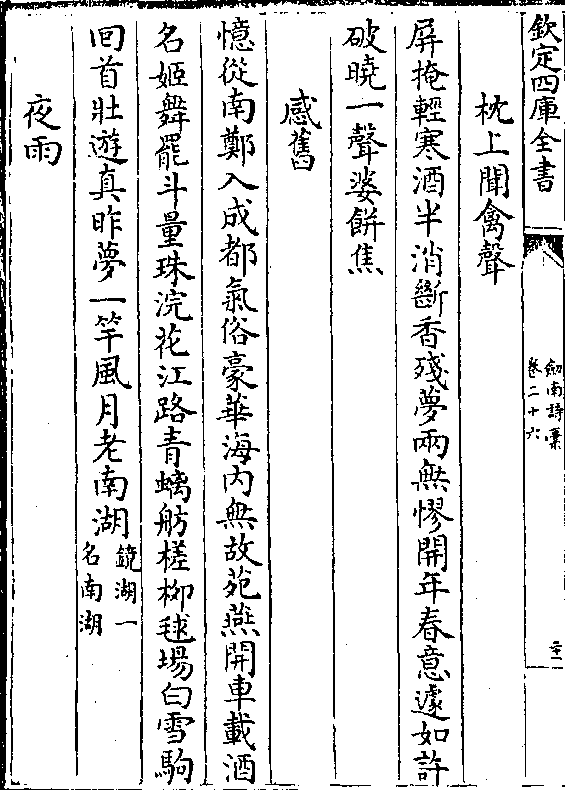 欽定四庫全書
劒南詩藁
卷二十六
二十一
枕上聞禽聲
屏掩輕寒酒半消斷香殘夢兩無憀開年春意遽如許
破曉一聲婆餅焦
感舊
憶從南鄭入成都氣俗豪華海内無故苑燕開車載酒
名姬舞罷斗量珠浣花江路青螭舫槎柳毬場白雪駒
囘首壯遊真昨夢一竿風月老南湖鏡湖一
名南湖
夜雨